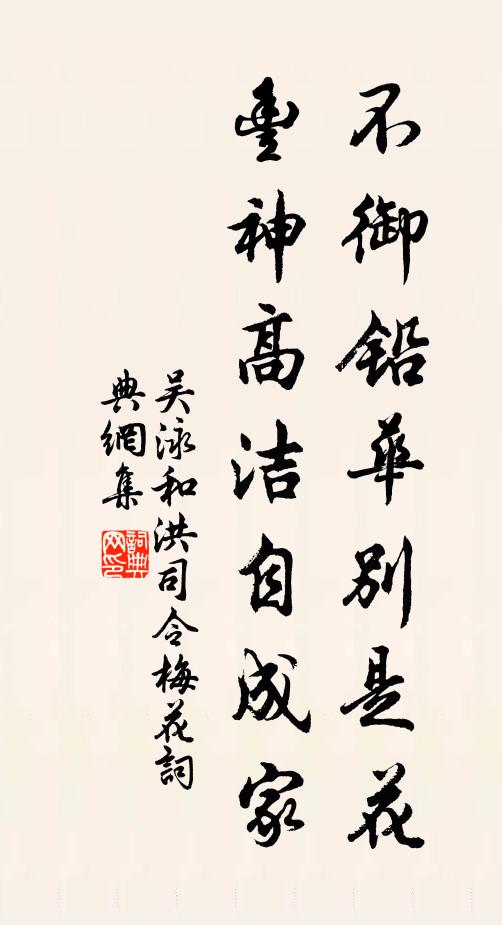 不御铅華别是花
豊神高洁自成家
吴泳和洪司令梅花詞
典網集
詞典网印